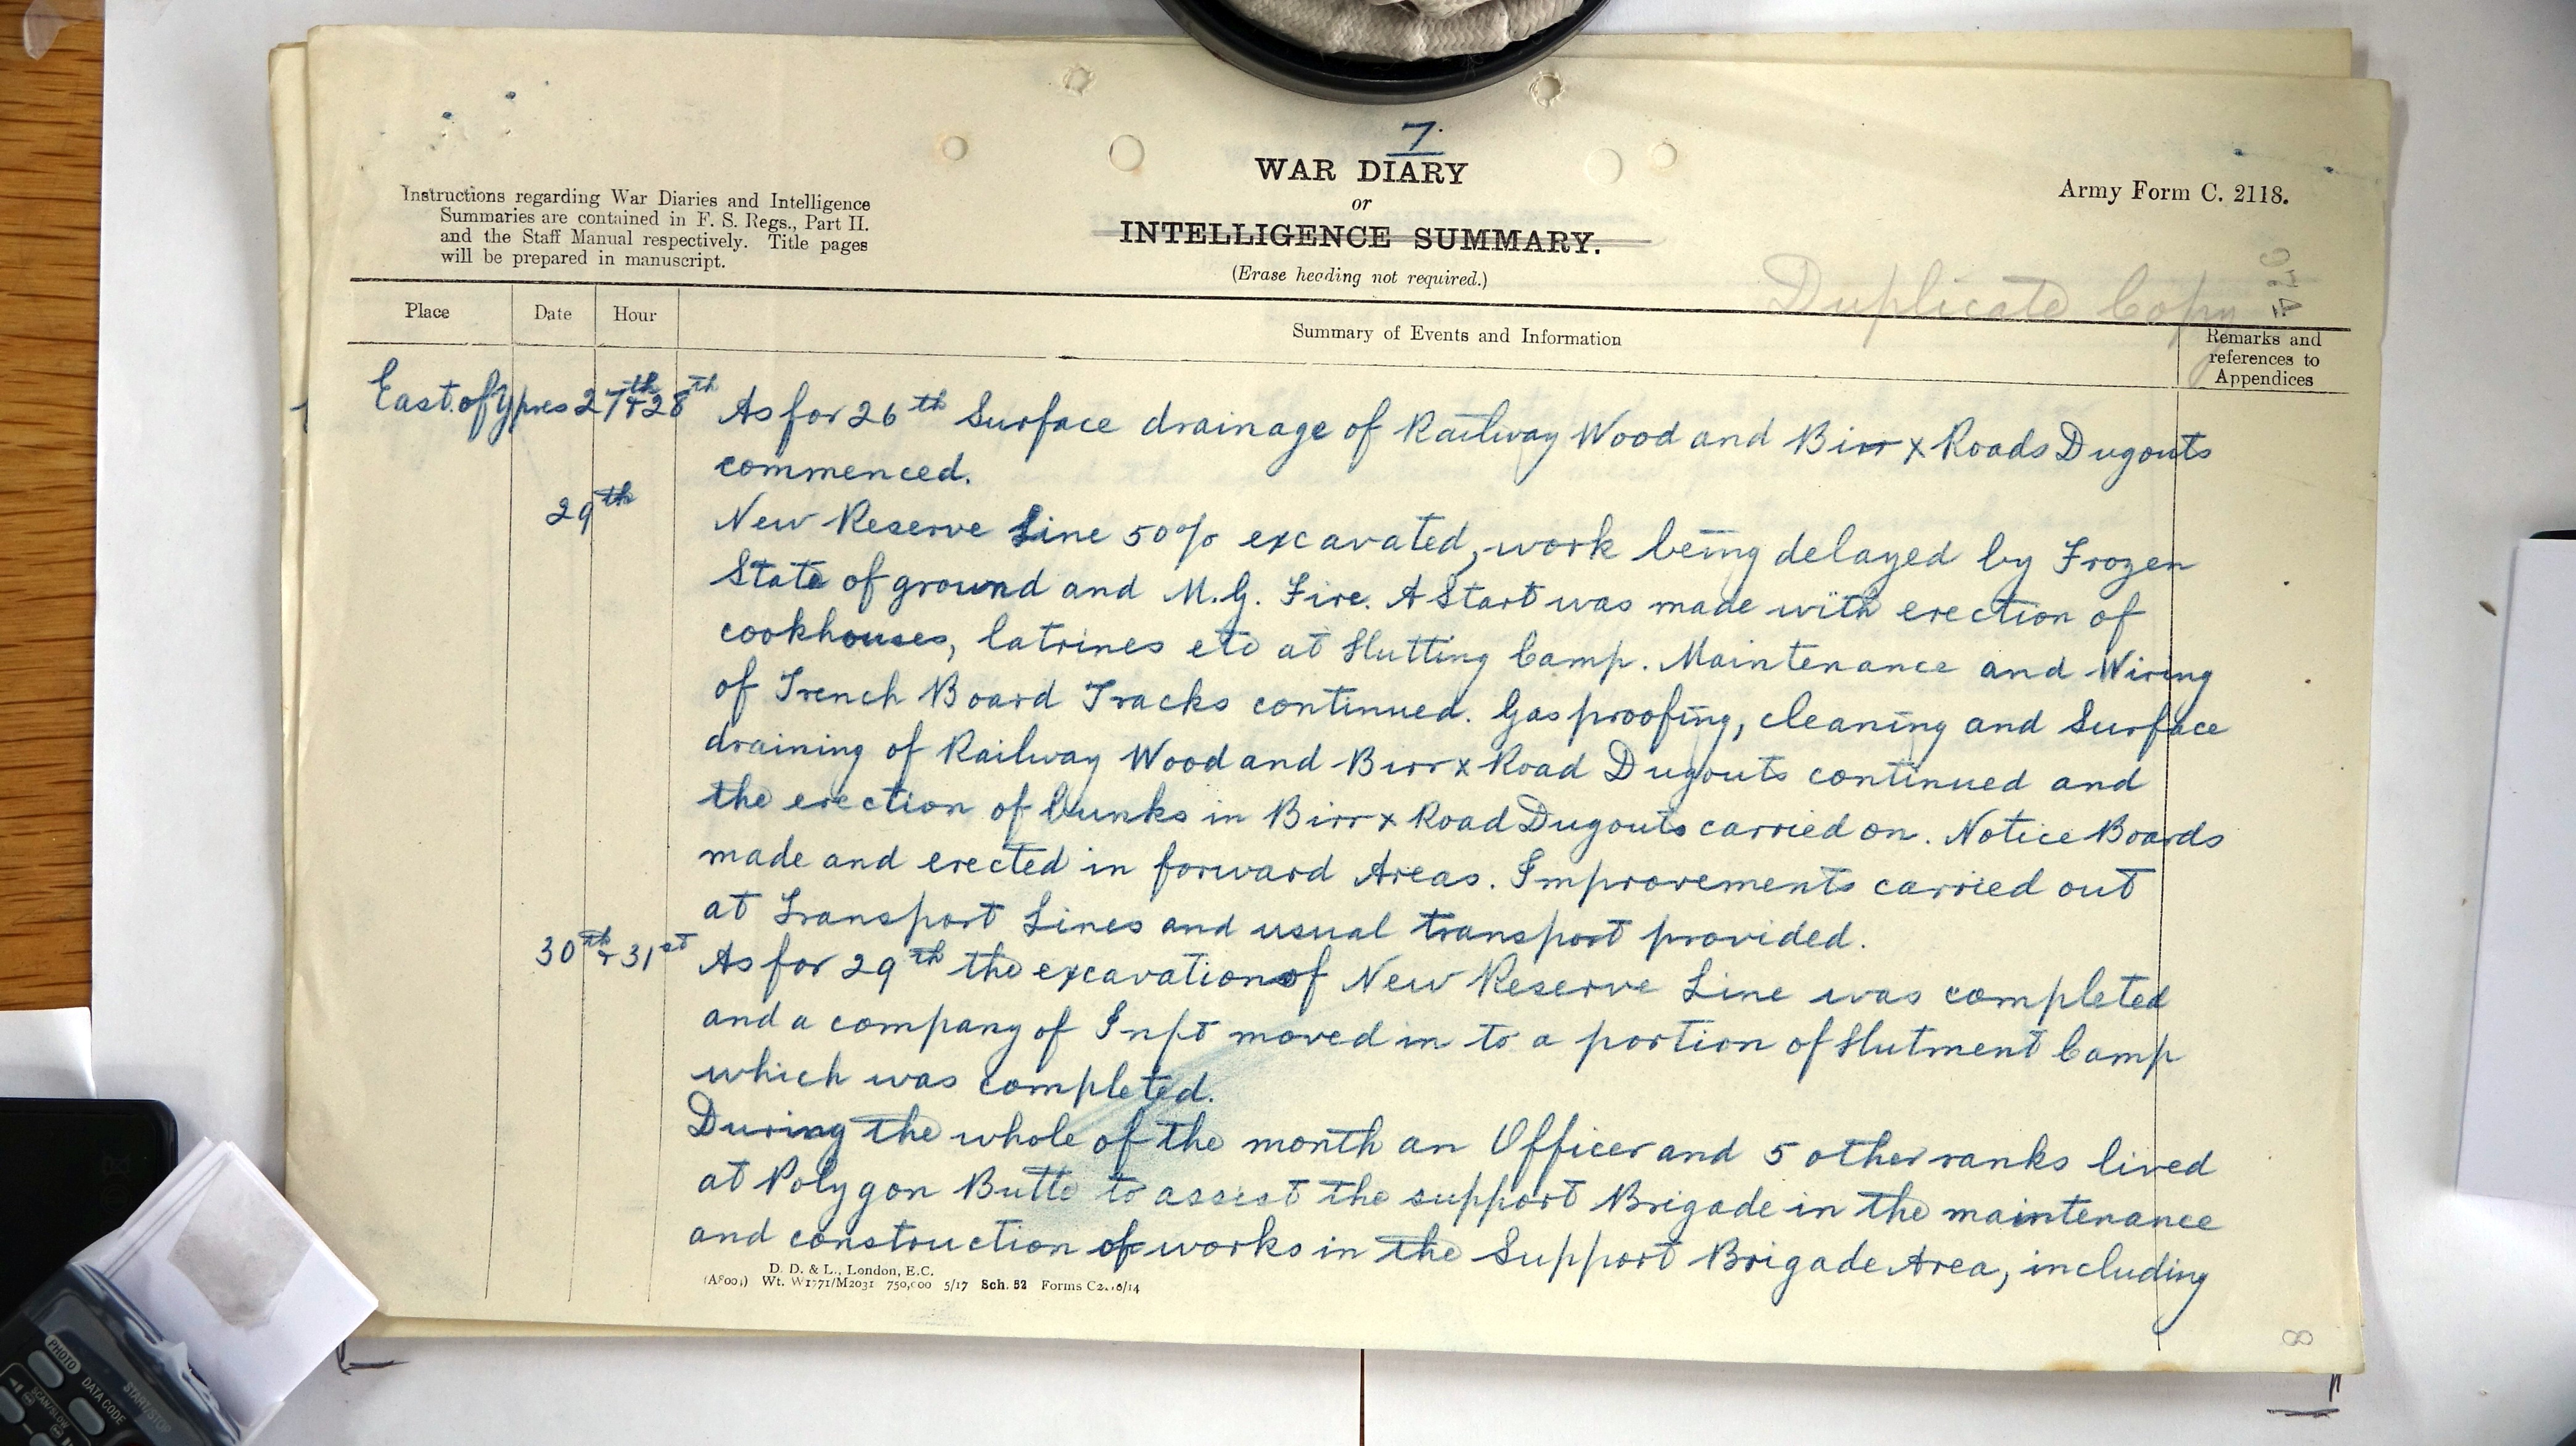 7.
WAR DIARY
or
INTELLIGENCE SUMMARY.
(Erase heading not required.)
Instructions regarding War Diaries and Intelligence
Summaries are contained in F. S. Regs., Part II.
and the Staff Manual respectively. Title pages
will be prepared in manuscript.
Army Form C. 2118.
Duplicate Copy
Place
Date
Hour
Summary of Events and Information
Remarks and
references to
Appendices
East of Ypres 27th + 28th As for 26th Surface drainage of Railway Wood and Birr x Roads Dugouts
commenced.
29th New Reserve Line 50% excavated, work being delayed by Frozen
State of ground and M.G. Fire. A Start was made with erection of
cookhouses, latrines etc at Hutting Camp. Maintenance and Wiring
of Trench Board Tracks continued. Gas proofing, cleaning and Surface
draining of Railway Wood and Birr x Road Dugouts continued and
the erection of bunks in Birr x Road Dugouts carried on. Notice Boards
made and erected in forward Areas. Improvements carried out
at Transport Lines and usual transport provided.
30th + 31st As for 29th the excavation of New Reserve Line was completed
and a company of Inft moved in to a portion of Hutment Camp
which was completed.
During the whole of the month an Officer and 5 other ranks lived
at Polygon Butte to assist the support Brigade in the maintenance
and construction of works in the Support Brigade Area, including
D. D. & L., London, E.C.
(A8001) Wt. W1771/M2031 750,000 5/17 Sch. 82 Forms C2118/14
8
PHOTO
DATA CODE
SCAN/SLOW
START/STOP